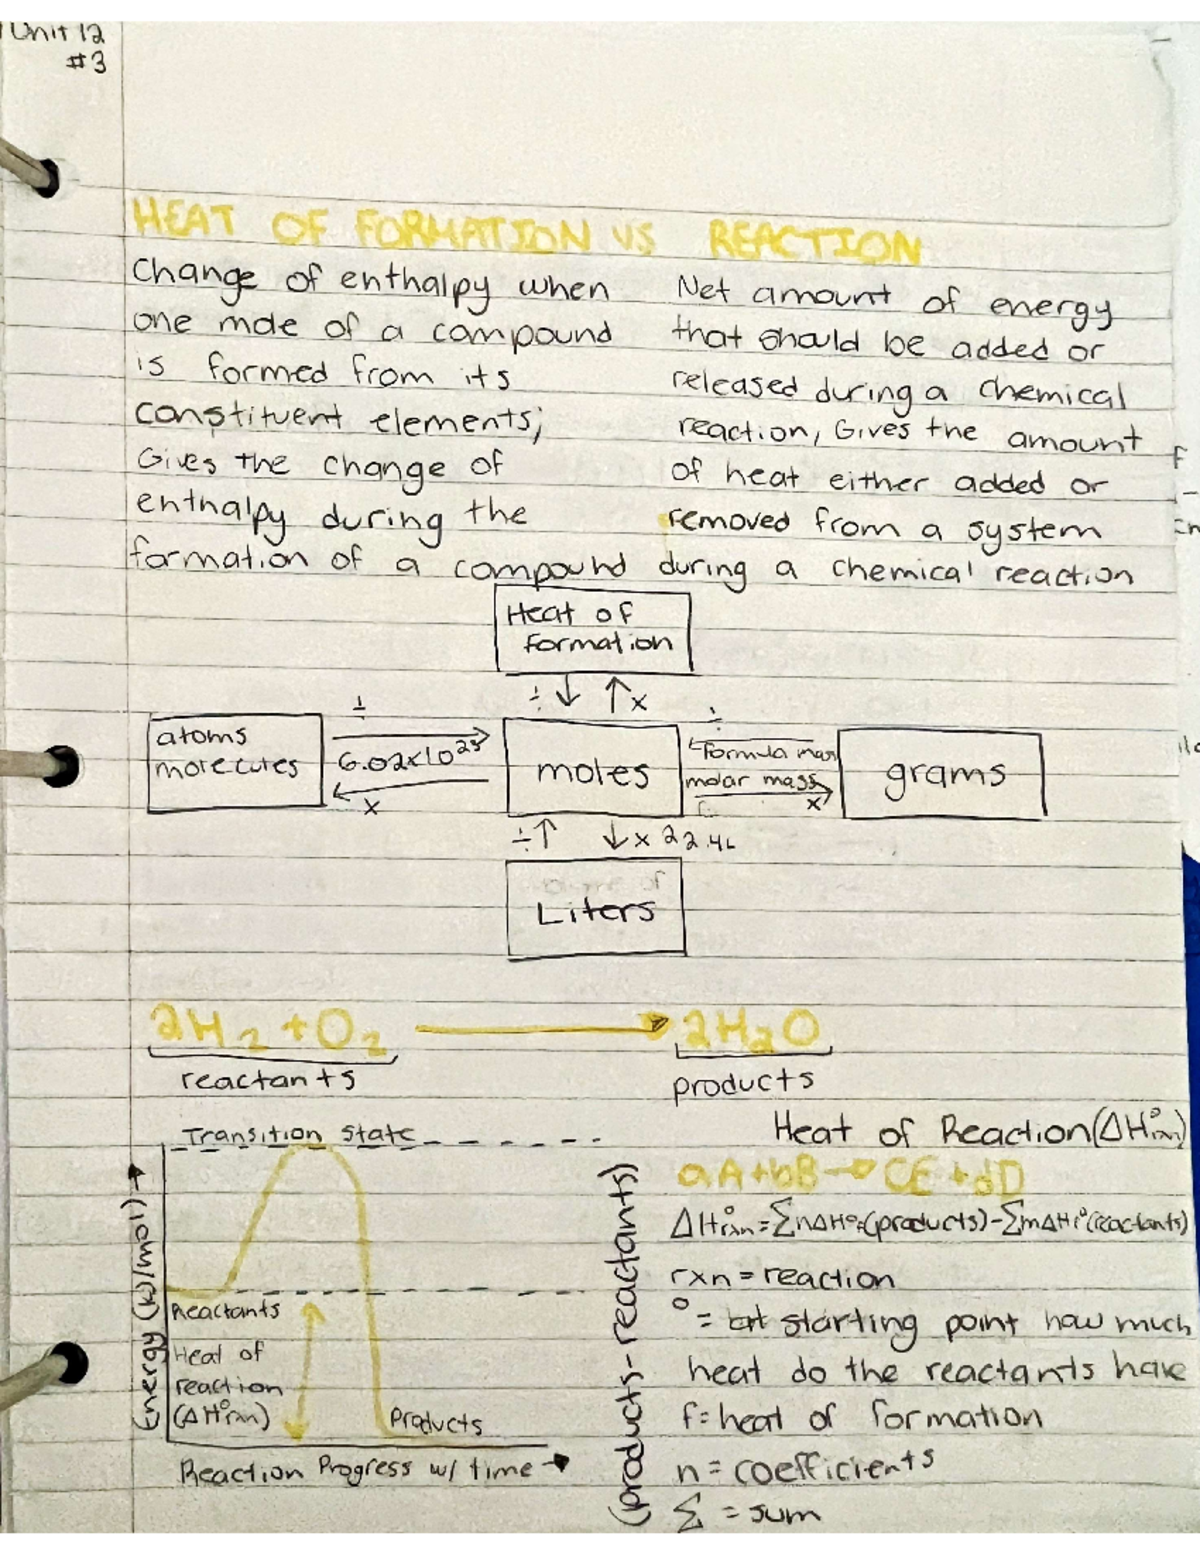 Unit 12
#3
HEAT OF FORMATION VS REACTION
Change of enthalpy when
one mole of a compound
is formed from its
constituent elements;
Gives the change of
enthalpy during the
formation of a compound
Net amount of energy
that should be added or
released during a chemical
reaction, Gives the amount
of heat either added or
removed from a system
during a chemical reaction
Heat of
formation
÷ ↓ ↑ x
atoms
molecules
÷
6.02x10²³
x
moles
÷
formula mas
molar mass
x
grams
÷↑ ↓x 22.4L
Liters
2H₂ + O₂ → 2H₂O
reactants
products
Transition state
Energy (kJ/mol) →
Reactants
Heat of
reaction
(ΔH°rxn)
Products
Reaction Progress w/ time →
(products-reactants)
Heat of Reaction(ΔH°rxn)
aA+bB → CE +dD
ΔH°rxn=ΣnΔH°f(products)-ΣmΔHf°(reactants)
rxn = reaction
° = starting point how much
heat do the reactants have
f= heat of formation
n = coefficients
Σ = sum